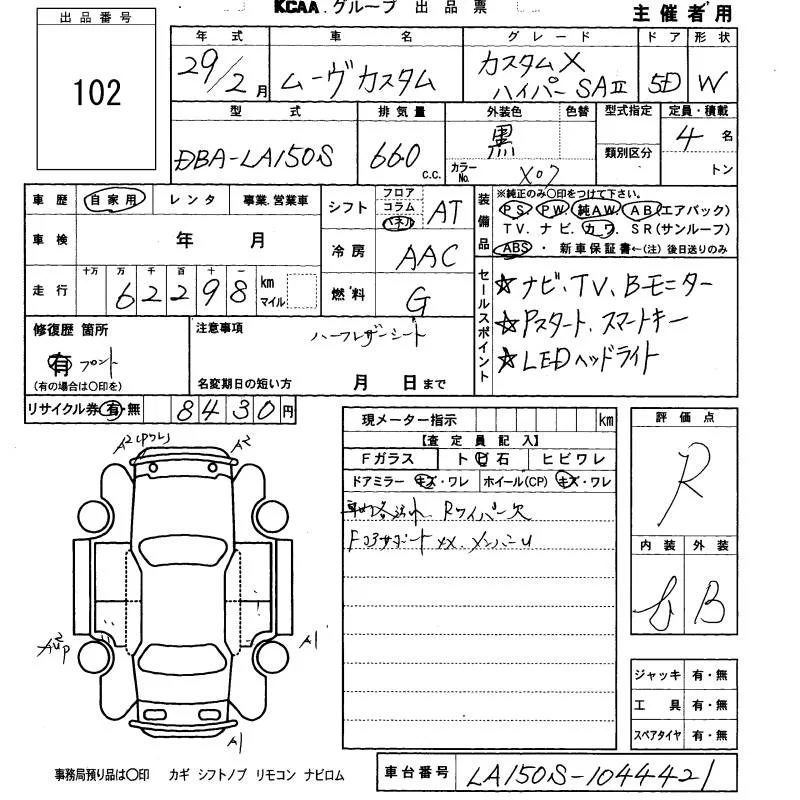 KCAA. グループ 出品票
主催者用
出品番号
102
年式 車名 グレード ドア 形状
29/2月 ムーヴカスタム カスタムX ハイパーSAⅡ 5D W
型式 排気量 外装色 色替 型式指定 定員・積載
DBA-LA150S 660 C.C. 黒 4名
カラーNo. X07 類別区分 トン
車歴 自家用 レンタ 事業.営業車
車検 年 月
走行 十万 万 千 百 十 一 km マイル
62298
シフト フロア コラム パネル AT
冷房 AAC
燃料 G
装備品
※純正のみ〇印をつけて下さい。
PS. PW. 純AW. AB(エアバック)
TV. ナビ. カワ. SR(サンルーフ)
ABS・ 新車保証書←(注) 後日送りのみ
セールスポイント
☆ナビ、TV、Bモニター
☆Pスタート、スマートキー
☆LEDヘッドライト
修復歴 箇所
有 フロント
(有の場合は〇印を)
注意事項
ハーフレザーシート
名変期日の短い方 月 日まで
リサイクル券 有・無 8430円
現メーター指示 km
【査定員記入】
Fガラス ト ビ 石 ヒビワレ
ドアミラー キズ・ワレ ホイール(CP) キズ・ワレ
Rワイパー欠
Fコアサポート XX. メンバーU
評価点
R
内装 外装
B
A2(ワレ) A2
A1
A1
ジャッキ 有・無
工具 有・無
スペアタイヤ 有・無
事務局預り品は〇印 カギ シフトノブ リモコン ナビロム
車台番号 LA150S-1044421